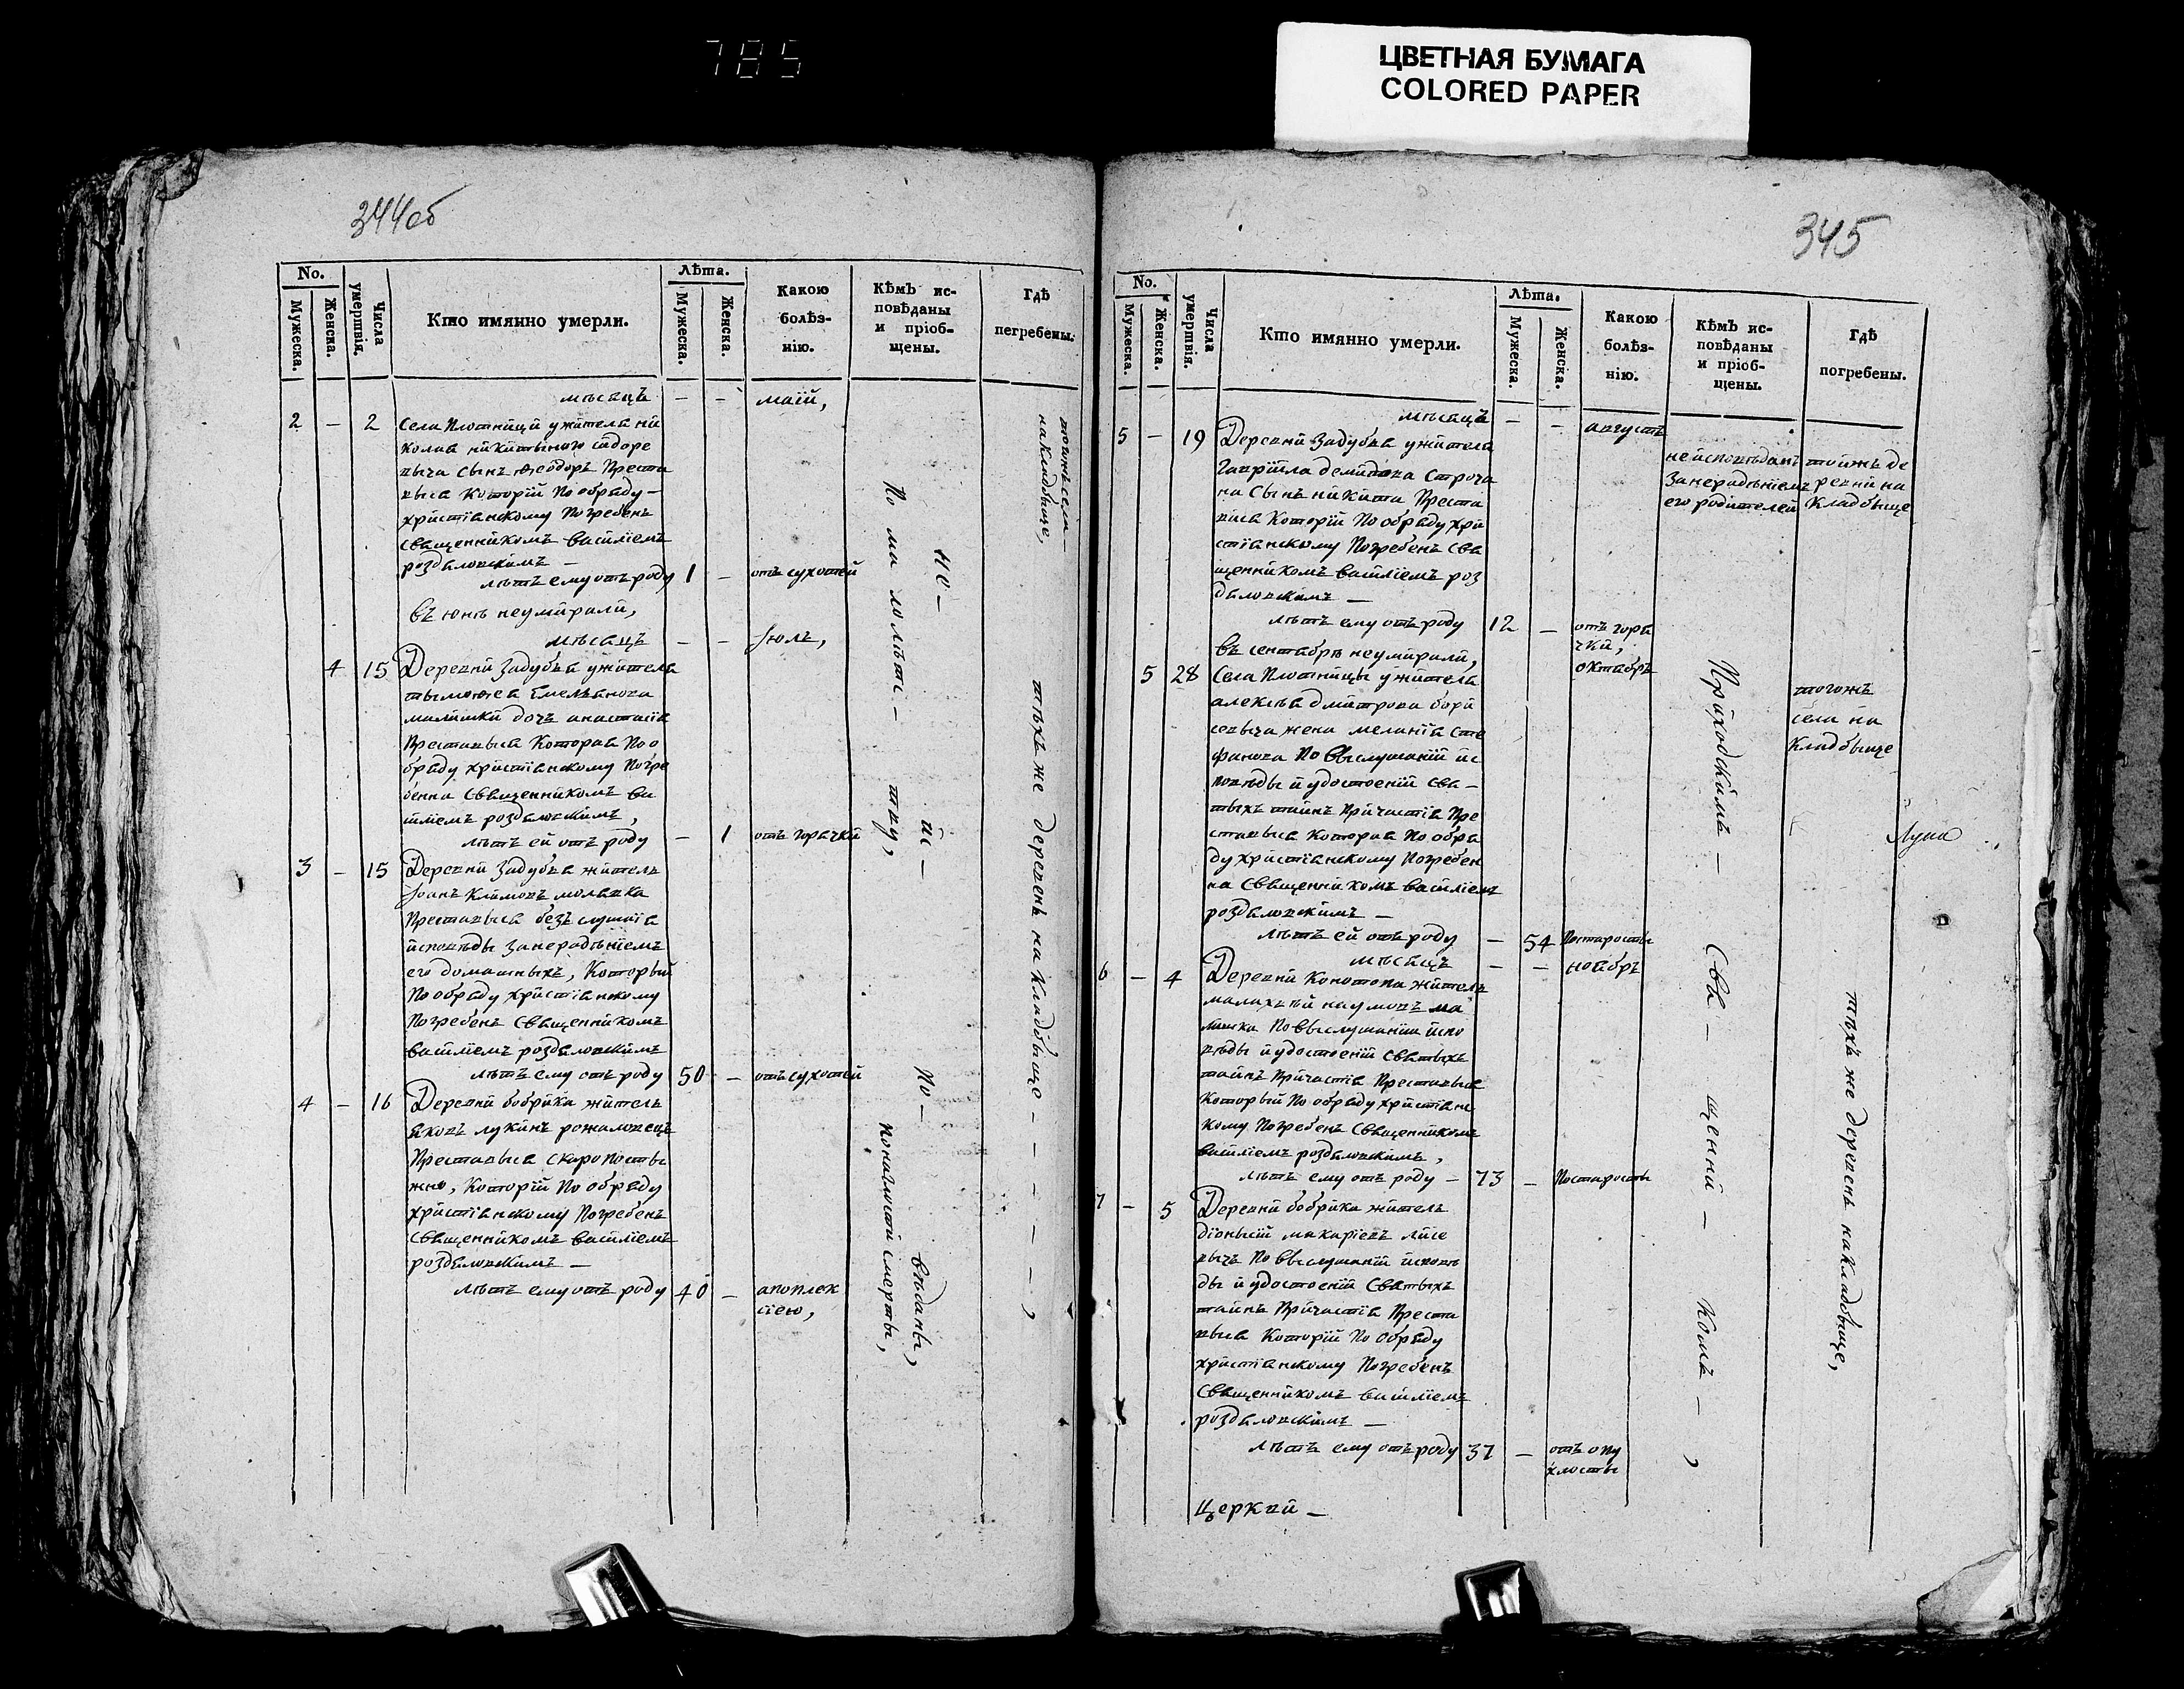 785
ЦВЕТНАЯ БУМАГА
COLORED PAPER
344об
No.
Мужеска.
Женска.
Числа умертвія.
Кто имянно умерли.
Лѣта.
Мужеска.
Женска.
Какою болѣз-
нію.
Кѣмъ ис-
повѣданы
и пріоб-
щены.
Гдѣ
пегребены.
мѣсяцъ — — маій,
2 — 2 Села Плотницй ужителя ни
колая никитыного сидоре
выча сынъ феодоръ Преста
выся Которій По обряду —
христіанскому Погребенъ
священникомъ василіемъ
роздяловскимъ —
лѣтъ ему отъ роду 1 — отъ сухотей
въ юнѣ неумирали,
мѣсяцъ — — Іюль,
4 15 Деревни Задубья ужителя
тымофея Емельянова
малишки дочъ анастасія
Преставыся Которая По о
бряду христіанскому Погре
бенна священникомъ ва
силіемъ роздяловскимъ,
лѣтъ ей отъ роду — 1 отъ горячки
3 — 15 Деревни Задубья житель
Іоанъ Климовъ молявка
Преставыся безъ слушанія
исповѣды Занерадѣніемъ
его домашныхъ, Который
По обряду христіанскому
Погребенъ священникомъ
василіемъ роздяловскимъ
лѣтъ ему отъ роду 50 — отъ сухотей
4 — 16 Деревни бобрика житель
яковъ лукинъ рожаловецъ
Преставыся скоропосты
жно, Которій По обряду
христіанскому Погребенъ
священникомъ василіемъ
роздяловскимъ —
лѣтъ ему отъ роду 40 — апоплек
сіею,
По ма лолѣтс — тву,
не — ис — По — вѣданы,
Поналности смерты,
тогожъ села —
на Кладбыще,
тѣхъ же деревень на Кладбыще — — — — — — ,
345
No.
Мужеска.
Женска.
Числа умертвія.
Кто имянно умерли.
Лѣта.
Мужеска.
Женска.
Какою
болѣз-
нію.
Кѣмъ ис-
повѣданы
и пріоб-
щены.
Гдѣ
погребены.
мѣсяцъ — — августъ
5 — 19 Деревни Задубья ужителя
Гавріила демидова строча
на сынъ никита Преста
выся Которій По обряду хри
стіанскому Погребенъ свя
щенникомъ василіемъ роз
дяловскимъ —
лѣтъ ему отъ роду 12 — отъ горя
чки,
неисповѣданъ
Занерадѣніемъ
его родителей
тойжъ де
ревни на
Кладбыще
въ сентябрѣ неумирали,
октябрь
5 28 Села Плотницы ужителя
алексѣя дмитрова бори
севыча жена меланія сте
фанова По выслушаніи ис
повѣды и удостоеніи свя —
тыхъ таинъ Причастія Пре
ставыся Которая По обря
ду христіанскому Погребен
на священникомъ василіемъ
роздяловскимъ —
лѣтъ ей отъ роду — 54 Постаросты
тогожъ
села на
Кладбыще
мѣсяцъ — — ноябрь
6 — 4 Деревни Конотопа житель
малахѣй наумовъ ма
лишка По выслушаніи испо
вѣды и удостоеніи святыхъ
таинъ Причастія Преставыся
Который По обряду христіанс
кому Погребенъ священникомъ
василіемъ роздяловскимъ,
лѣтъ ему отъ роду — 73 — Постаросты
7 — 5 Деревни бобрика житель
діонысій макаріевъ лисе
вычъ По выслушаніи исповѣ
ды и удостоеніи святыхъ
таинъ Причастія Преста
выся Которій По обряду
христіанскому Погребенъ
священникомъ василіемъ
роздяловскимъ —
лѣтъ ему отъ роду 37 — отъ опу
хлосты
Приходскимъ — Свя — щенни — комъ — ,
тѣхъ же деревень на Кладбыще,
Церкви —